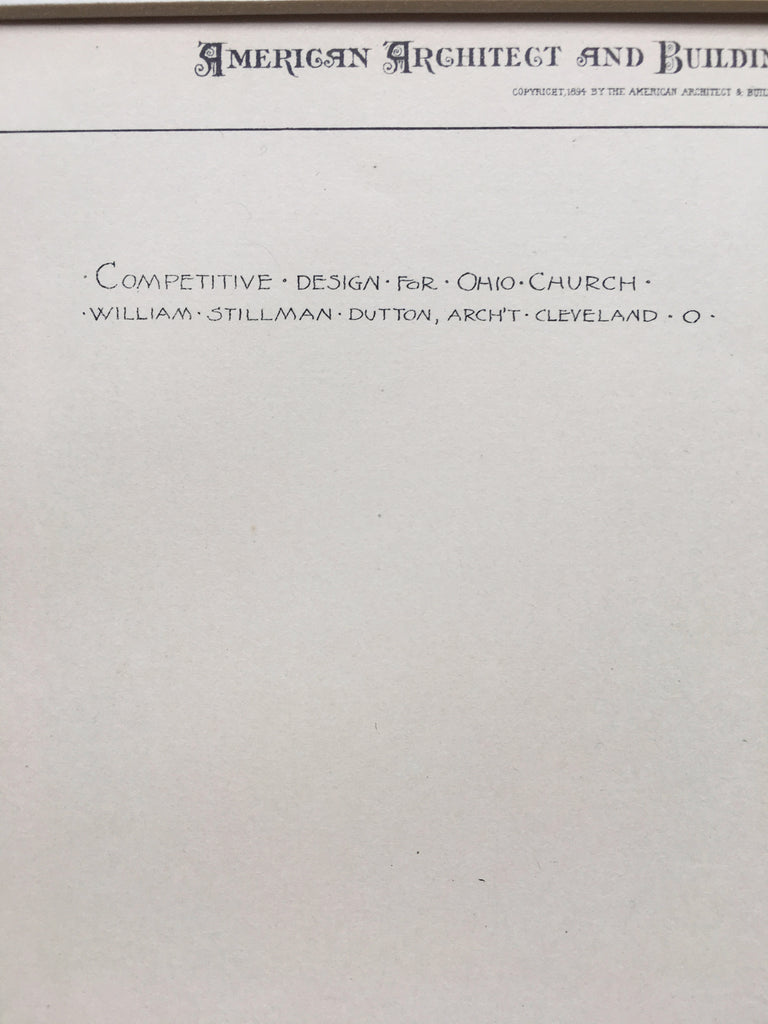 American Architect and Buildin
COPYRIGHT, 1894 BY THE AMERICAN ARCHITECT & BUIL
· COMPETITIVE · DESIGN · FOR · OHIO · CHURCH ·
· WILLIAM · STILLMAN · DUTTON, ARCH'T · CLEVELAND · O ·